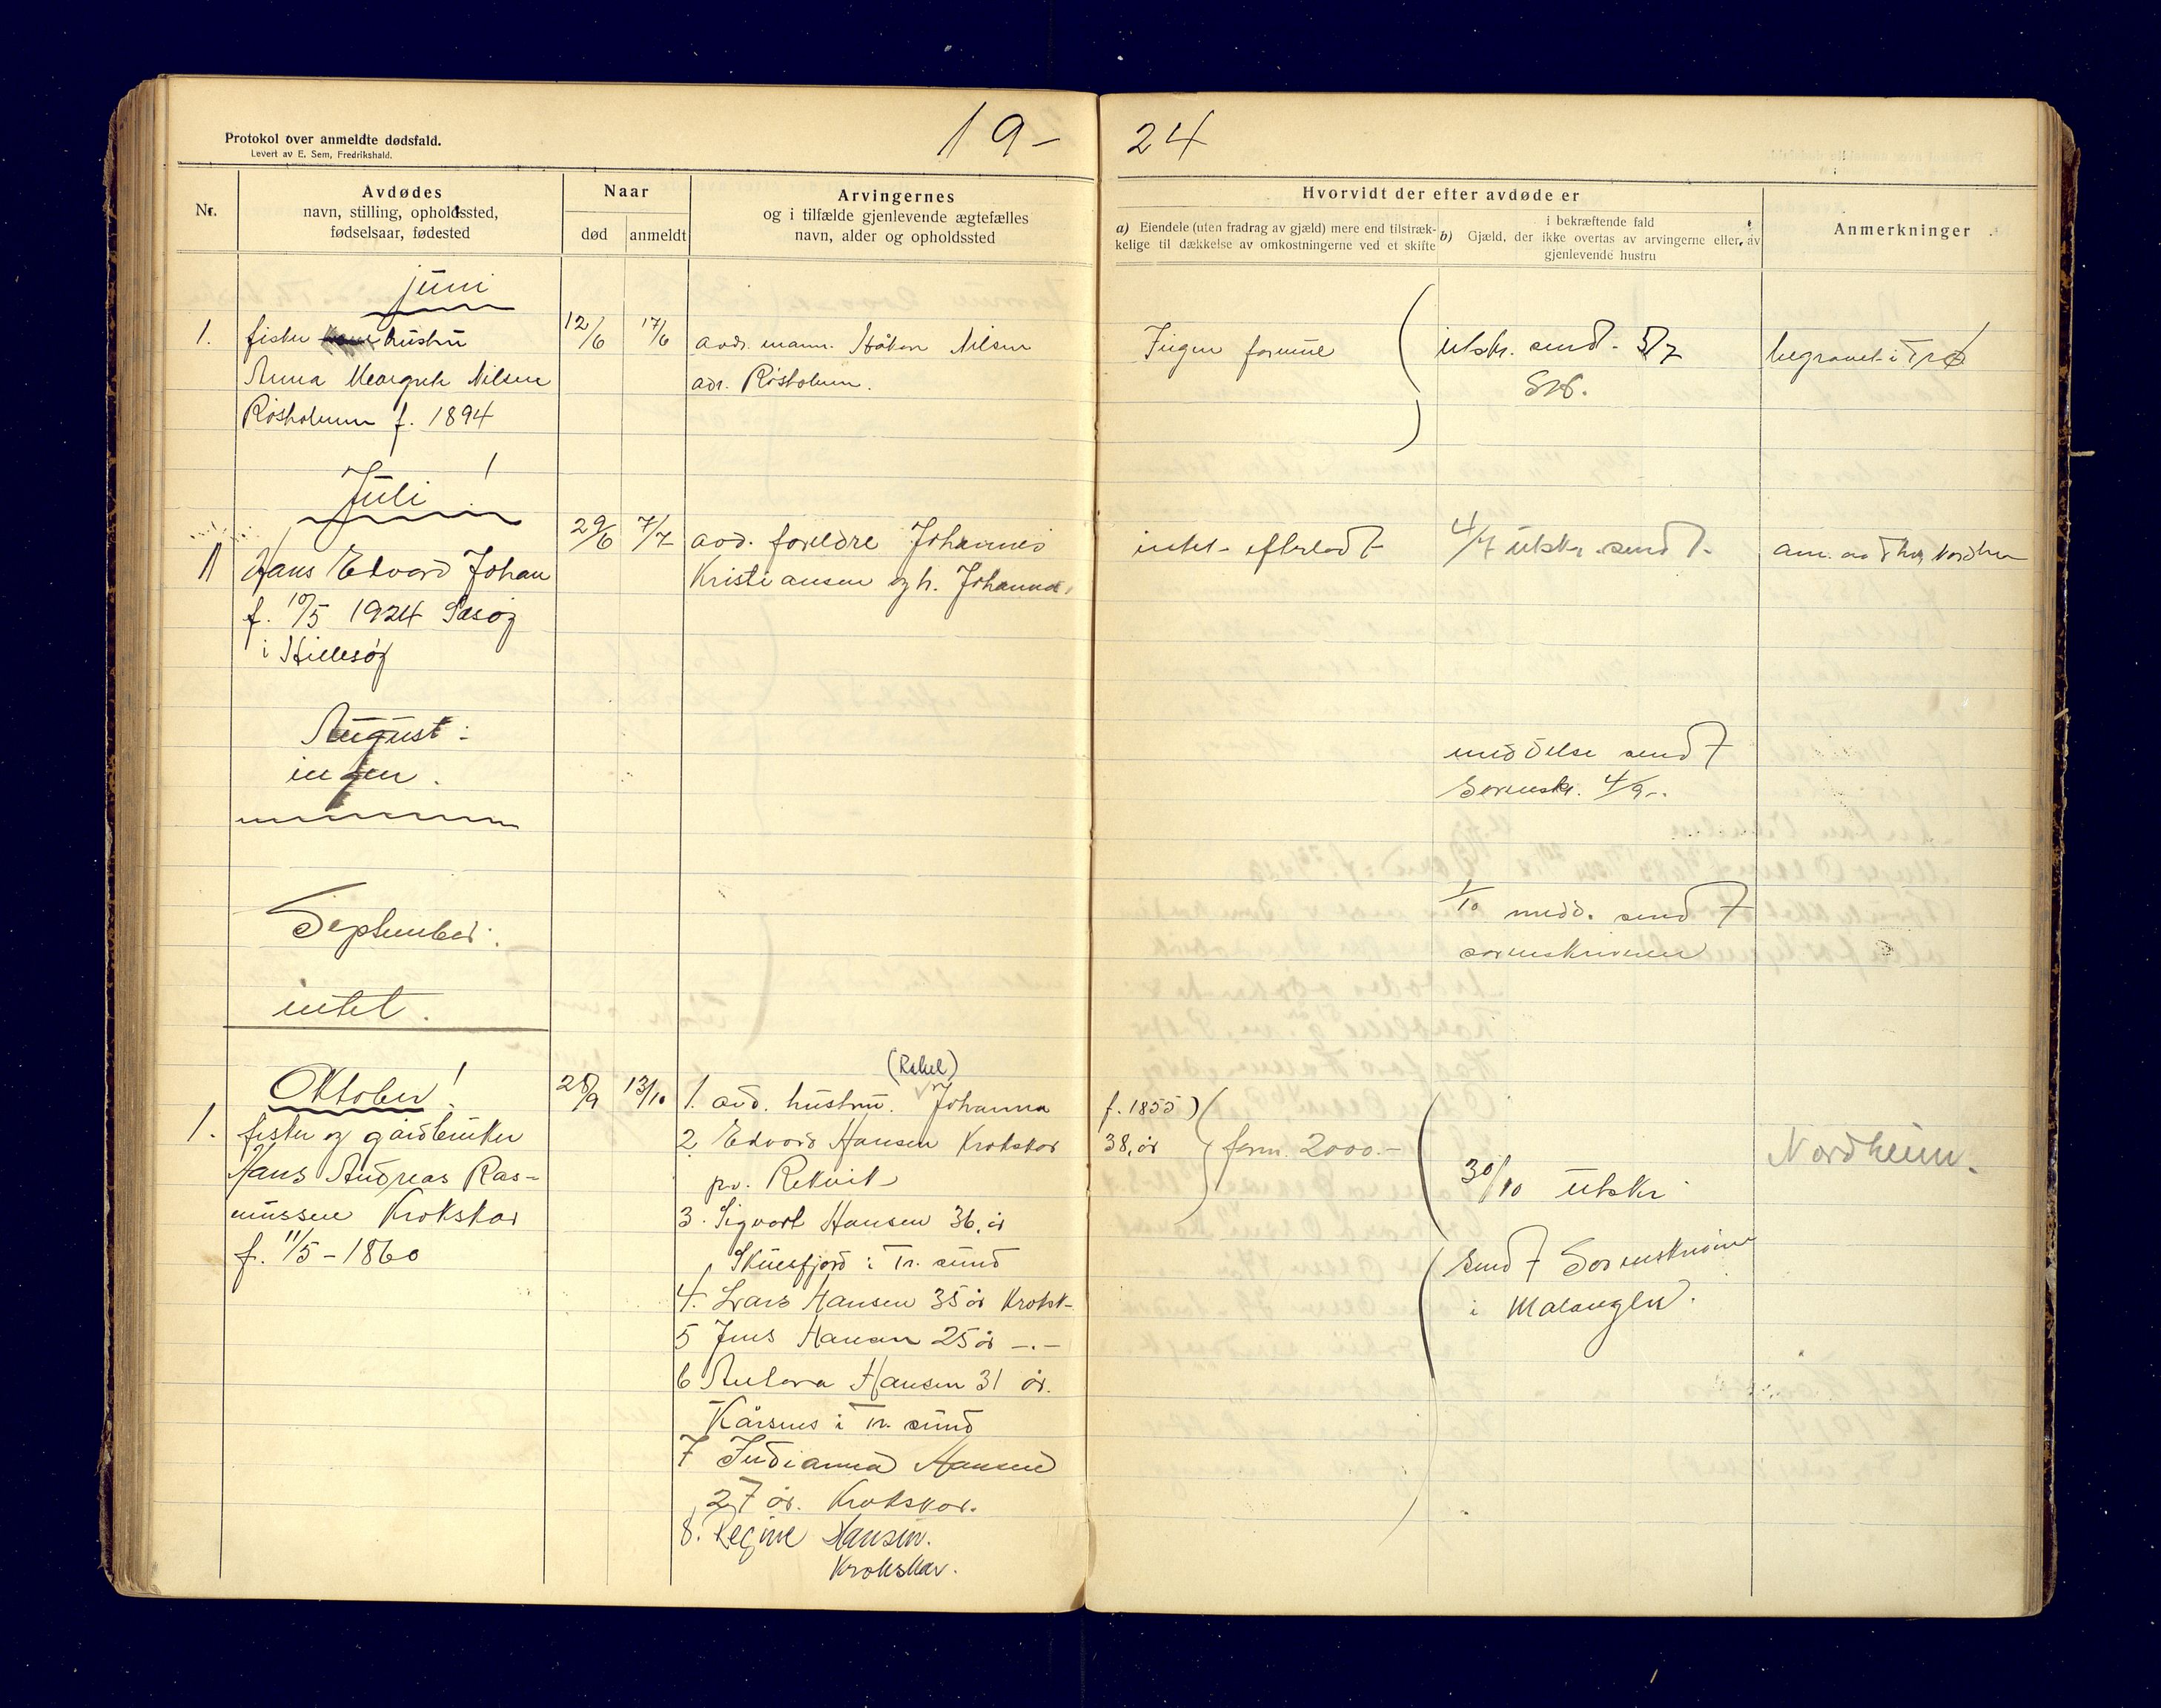 19-24
Protokol over anmeldte dødsfald.
Levert av E. Sem, Fredrikshald.
Nr.
Avdødes
navn, stilling, opholdssted,
fødselsaar, fødested
Naar
død
anmeldt
Arvingernes
og i tilfælde gjenlevende ægtefælles
navn, alder og opholdssted
Hvorvidt der efter avdøde er
a) Eiendele (uten fradrag av gjæld) mere end tilstræk-
kelige til dækkelse av omkostningerne ved et skifte
i bekræftende fald
b) Gjæld, der ikke overtas av arvingerne eller av
gjenlevende hustru
Anmerkninger
juni
1. fisker hustru
Anna Margrete Nilsen
Røsholmen f. 1894
12/6
17/6
avd. mann. Håkon Nilsen
adr. Røsholmen.
Ingen formue
utskr. send. 5/7
begravet i Trø
Juli!
1 Hans Edvard Johan
f. 10/5 1924 Sasøy
i Hillesøy
29/6
7/7
avd. foreldre Johannes
Kristiansen og h. Johanna.
intet efterladt
4/7 utskr. sendt.
August:
ingen.
meddelse sendt
Sorenskr. 4/9.
September:
intet.
1/10 medd. sendt
sorenskriveren
Oktober!
1. fisker og gårdbruker
Hans Andreas Ras-
mussen Krokskar
f. 11/5 - 1860
28/9
13/10
(Rakel)
1. avd. hustru. Johanna f. 1855)
2. Edvard Hansen Krokskar 38. år
pr. Rekvik
3. Sigvart Hansen 36. år
Skulsfjord i Tr. sund
4. Lars Hansen 35 år Kroksk-
5 Jens Hansen 25 år -.-
6 Hansen 31 år.
Kårsnes i Tr. sund
7 Indianna Hansen
27 år. Krokskar.
8. Regine Hansen.
Krokskar.
form. 2000.-
30/10 utskr
sendt Sorenskriveren
i Malangen.
Nordheim.